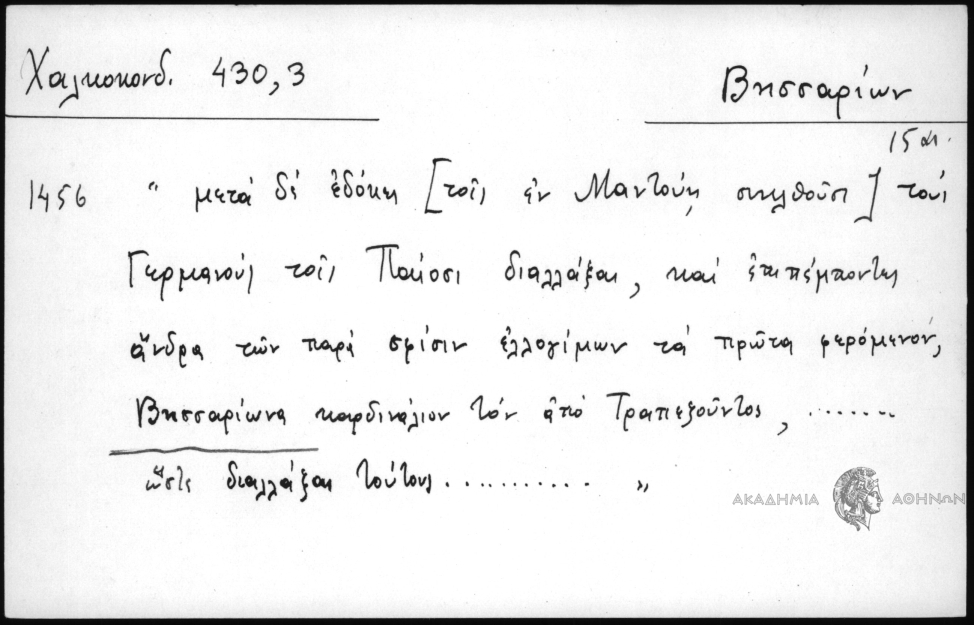 Χαλκοκονδ. 430,3
Βησσαρίων
15 αι.
1456 “ μετὰ δὲ ἐδόκει [τοῖς ἐν Μαντούῃ συνελθοῦσι] τοὺς
Γερμανοὺς τοῖς Παίοσι διαλλάξαι, καὶ ἐπιπέμποντες
ἄνδρα τῶν παρὰ σφίσιν ἐλλογίμων τὰ πρῶτα φερόμενον,
Βησσαρίωνα καρδινάλιον τὸν ἀπὸ Τραπεζοῦντος, ........
ὥστε διαλλάξαι τούτους ............ ”
ΑΚΑΔΗΜΙΑ ΑΘΗΝΩΝ